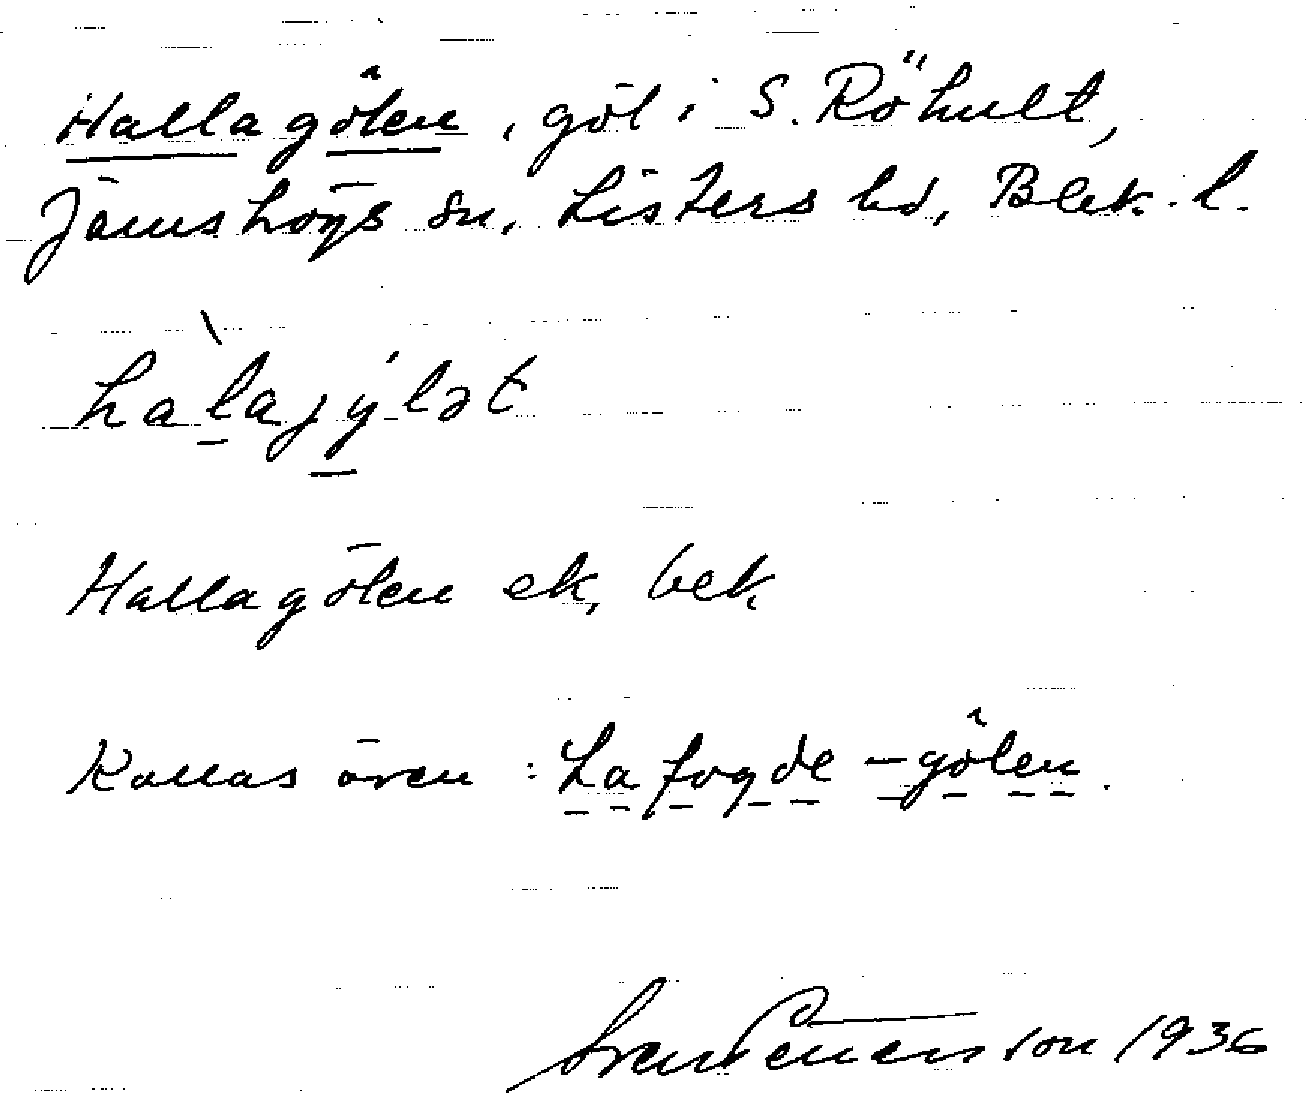 Hallagölen, göl i S. Röhult,
Jämshögs sn, Listers hd, Blek. l.
hàlajýlət
Hallagölen ek, bek
Kallas även: La fogde-gölen.
1936